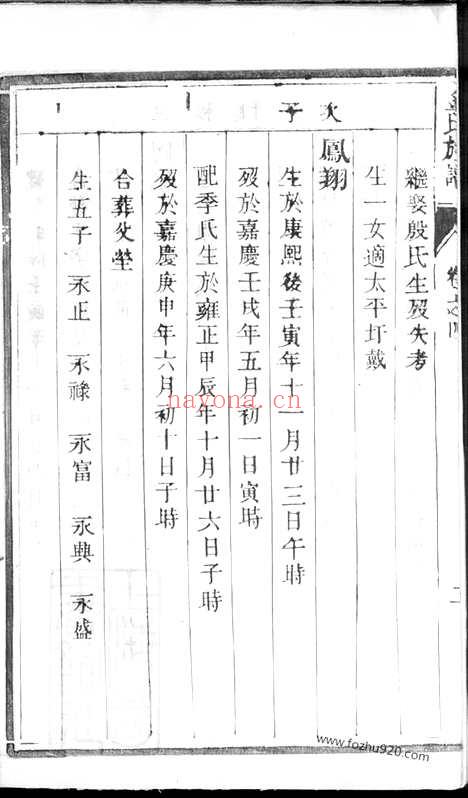 氏族譜
卷之四
繼娶殷氏生歿失考
生一女適太平圩戴
次子
鳳翔
生於康熙後壬寅年十一月廿三日午時
歿於嘉慶壬戌年五月初一日寅時
配季氏生於雍正甲辰年十月廿六日子時
歿於嘉慶庚申年六月初十日子時
合葬父塋
生五子 永正 永祿 永富 永興 永盛
nayona.cn
www.fozhu920.com